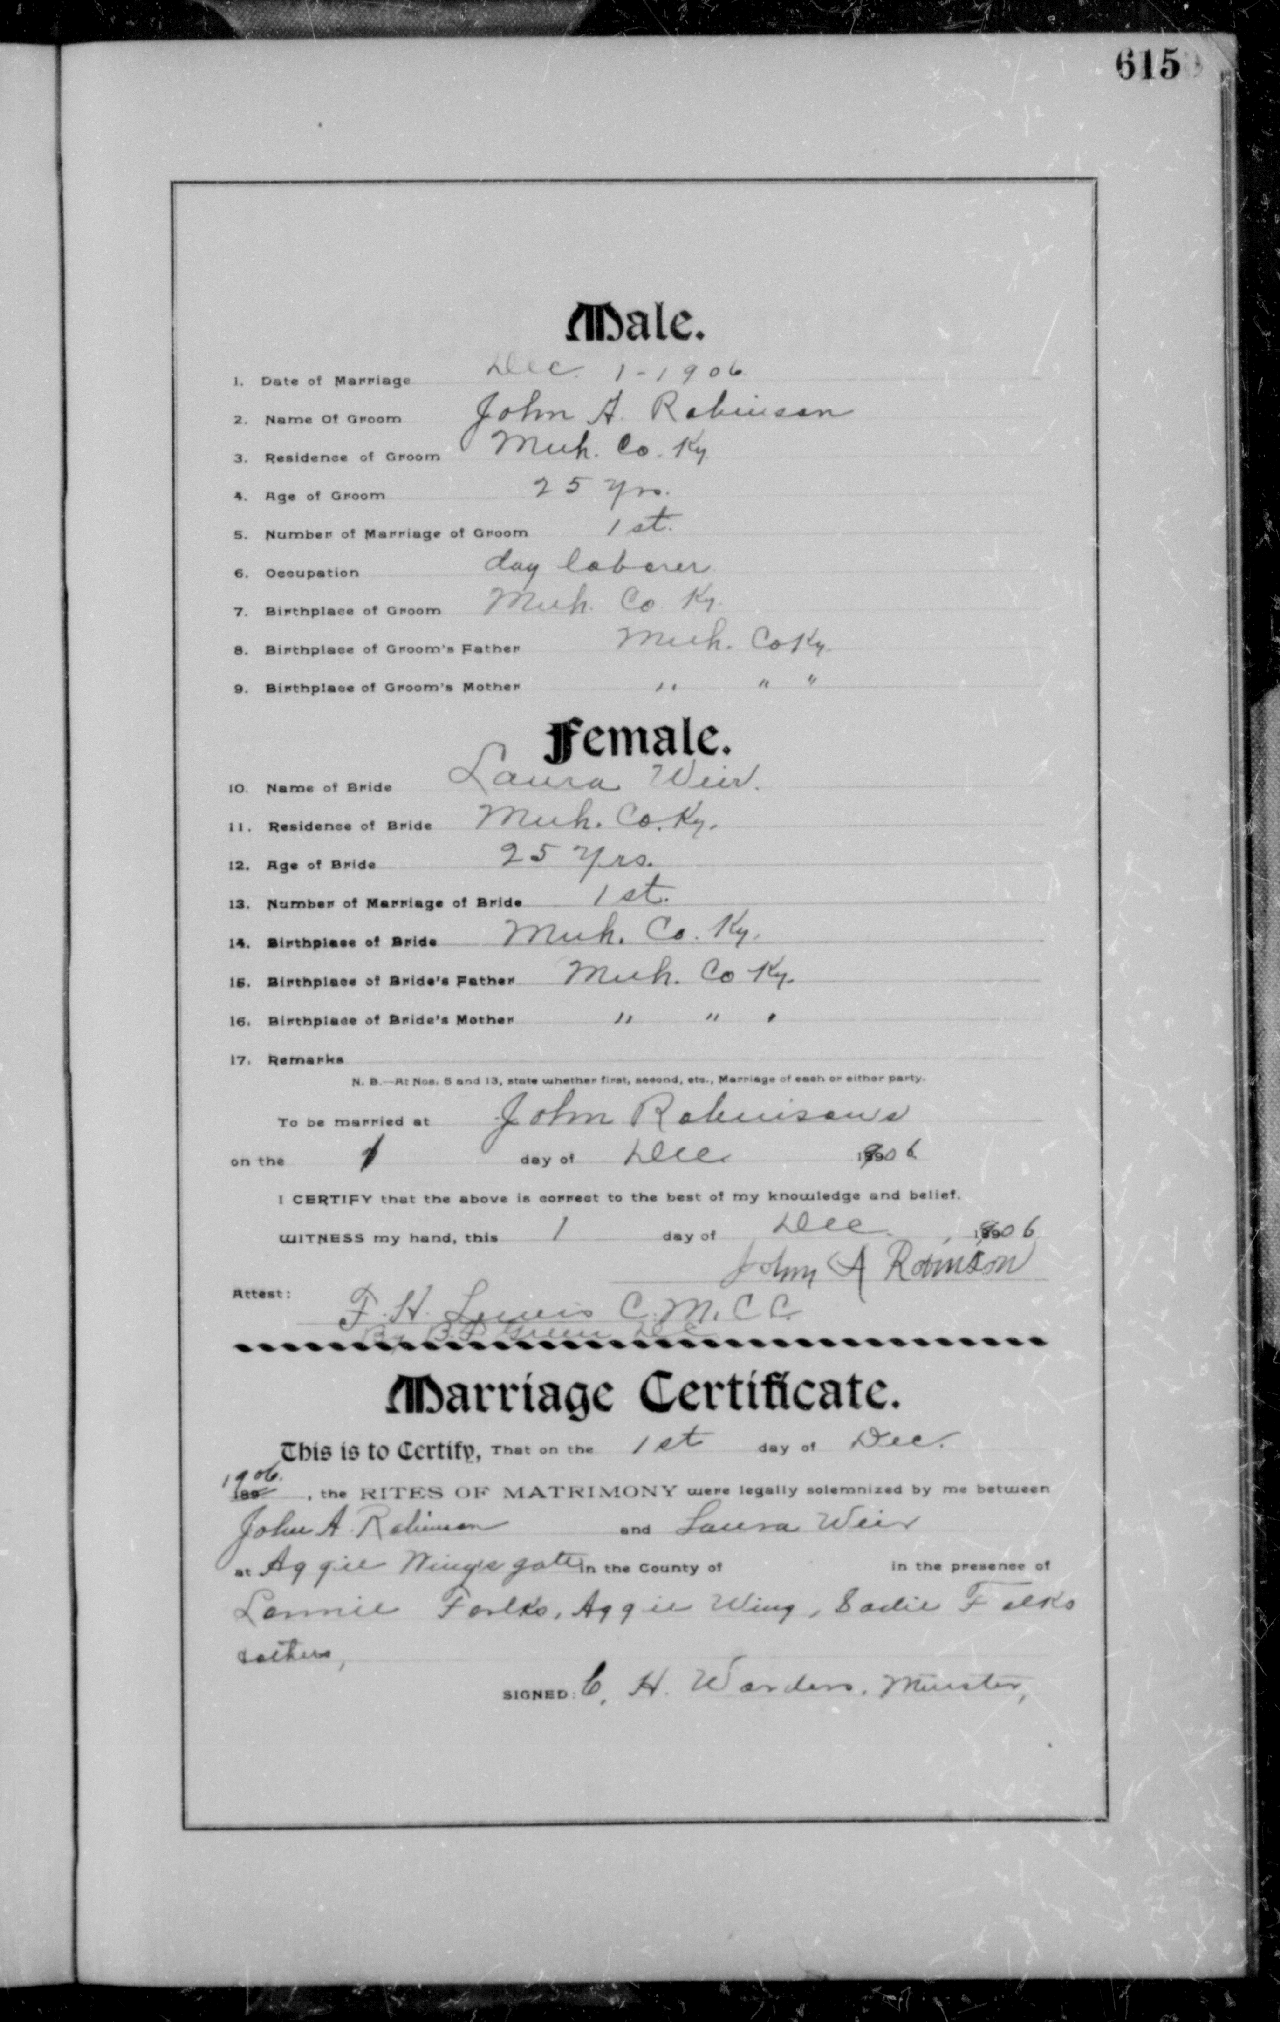 615
Male.
1. Date of Marriage Dec. 1-1906
2. Name Of Groom John A. Robinson
3. Residence of Groom Muh. Co. Ky
4. Age of Groom 25 yrs.
5. Number of Marriage of Groom 1st.
6. Occupation day laborer
7. Birthplace of Groom Muh. Co Ky.
8. Birthplace of Groom's Father Muh. Co Ky.
9. Birthplace of Groom's Mother " " "
Female.
10. Name of Bride Laura Weir.
11. Residence of Bride Muh. Co. Ky.
12. Age of Bride 25 Yrs.
13. Number of Marriage of Bride 1st.
14. Birthplace of Bride Muh. Co. Ky.
15. Birthplace of Bride's Father Muh. Co Ky.
16. Birthplace of Bride's Mother " " "
17. Remarks
N. B.—At Nos. 5 and 13, state whether first, second, etc., Marriage of each or either party.
To be married at John Robinsons
on the 1 day of Dec 1906
I CERTIFY that the above is correct to the best of my knowledge and belief.
WITNESS my hand, this 1 day of Dec. , 1906
John A Robinson
Attest: F. H. Lewis C. M. C. C.
By B. F. Green D C
Marriage Certificate.
This is to Certify, That on the 1st day of Dec.
1906 , the RITES OF MATRIMONY were legally solemnized by me between
John A. Robinson and Laura Weir
at Aggie Wing's gate in the County of in the presence of
Lonnie Forlks, Aggie Wing, Sadie Folks
& others,
SIGNED: C. H. Warders, Minister,